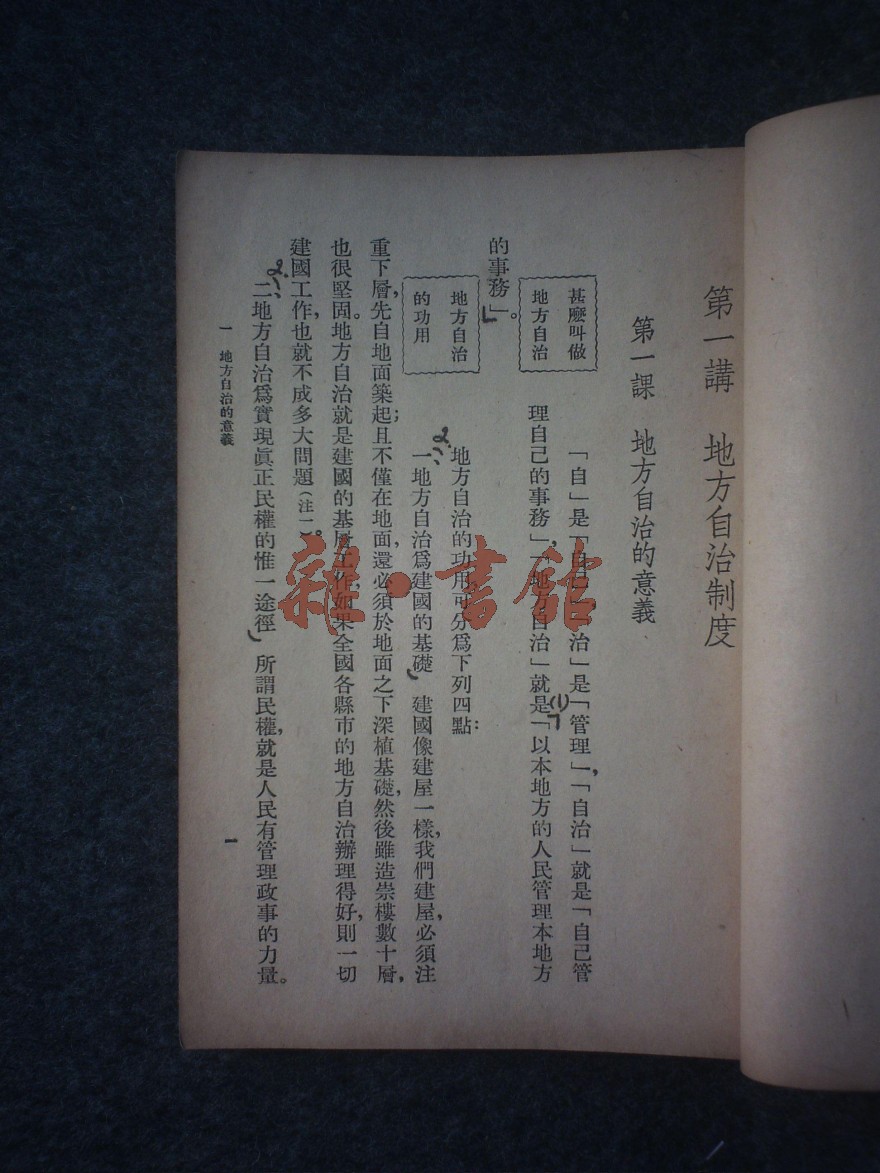 第一講　地方自治制度
第一課　地方自治的意義
甚麼叫做
地方自治
「自」是「自己」，「治」是「管理」，「自治」就是「自己管
理自己的事務」，「地方自治」就是「以本地方的人民管理本地方
的事務」。
地方自治
的功用
地方自治的功用，可分爲下列四點：
一、地方自治爲建國的基礎　建國像建屋一樣，我們建屋，必須注
重下層，先自地面築起；且不僅在地面，還必須於地面之下深植基礎，然後雖造崇樓數十層，
也很堅固。地方自治就是建國的基層工作，如果全國各縣市的地方自治辦理得好，則一切
建國工作，也就不成多大問題（注一）。
二、地方自治爲實現眞正民權的惟一途徑　所謂民權，就是人民有管理政事的力量。
一　地方自治的意義
一
雜·書館